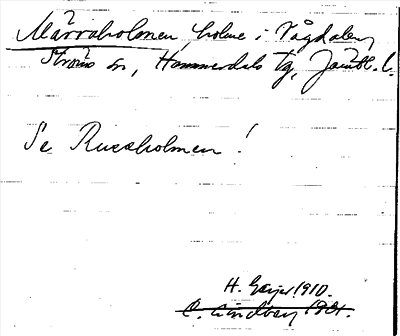 Märraholmen, holme i Vågdalen,
Ströms sn, Hammerdals tg, Jämtl. l.
Se Russholmen!
H. Geijer 1910.
C. Lindberg 1931.